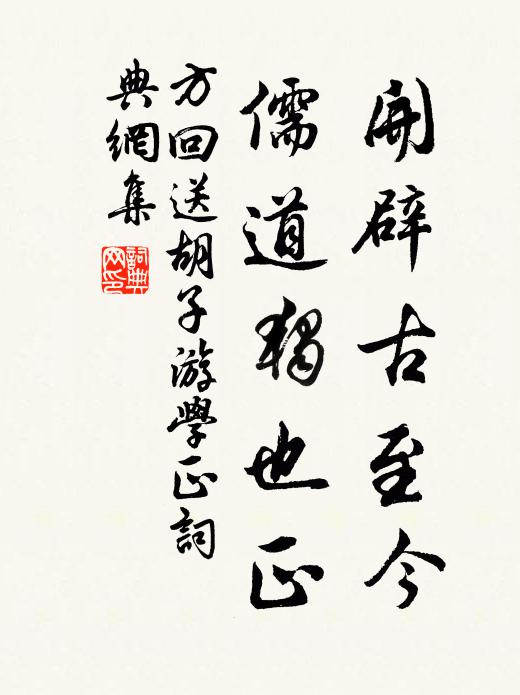 開辟古至今
儒道獨也正
方回送胡子游學正詞
典網集
詞典
网印